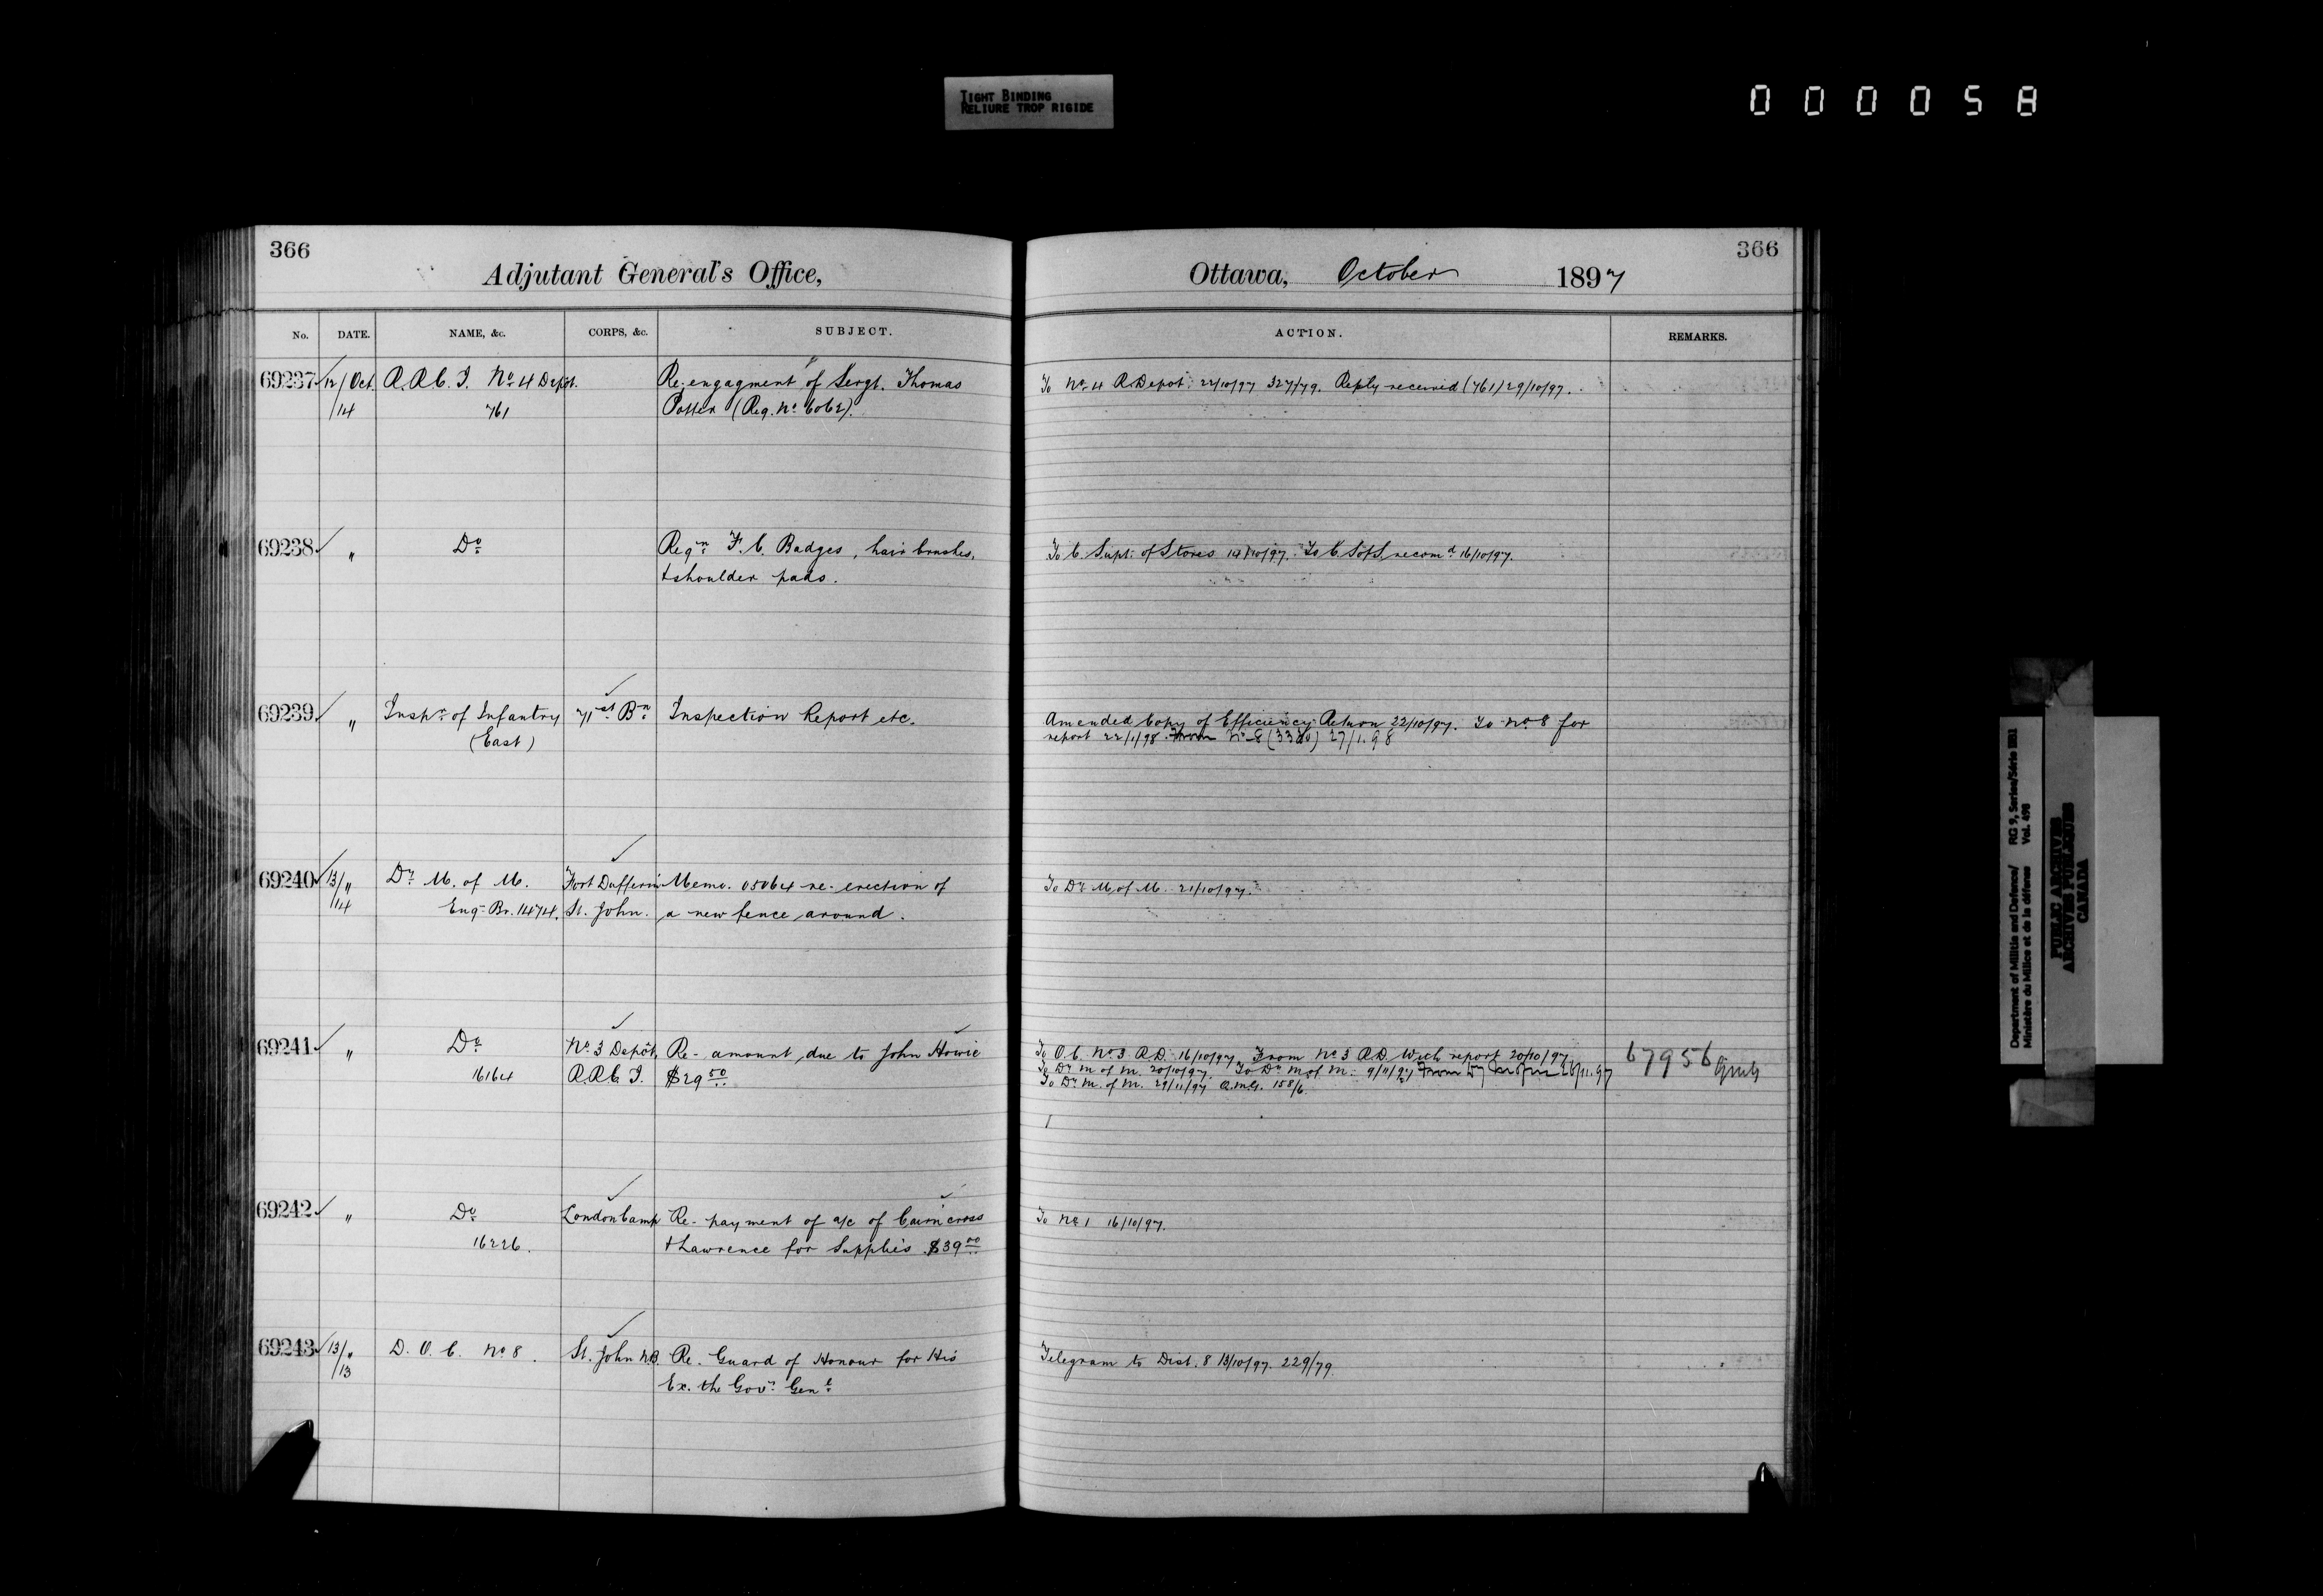 TIGHT BINDING
RELIURE TROP RIGIDE
000058
366
Adjutant General's Office,
No. DATE. NAME, &c. CORPS, &c. SUBJECT.
69237 12/14 Oct. R.R.C.I. No 4 Depot. Re-engagment of Sergt. Thomas
761 Potter (Reg. No 6062).
69238 " Do Reqn F.C. Badges, hair brushes,
+ shoulder pads.
69239 " Inspr of Infantry 71st Bn Inspection Report etc.
(East)
69240 13/14 " Dy M. of M. Fort Dufferin Memo. 05064 re-erection of
Eng. Br. 1474. St. John. a new fence around.
69241 " Do No 3 Depot, Re- amount due to John Howie
16164 R.R.C.I. $29.50
69242 " Do London Camp Re- payment of a/c of Cairncross
16226. + Lawrence for Supplies $39.00
69243 13/13 " D.O.C. No 8. St. John N.B. Re. Guard of Honour for His
Ex. the Govr Genl
366
Ottawa, October 1897
ACTION. REMARKS.
To No 4 R. Depot. 22/10/97 327/79. Reply received (761) 29/10/97.
To C. Supt. of Stores 14/10/97. To C.S of S. recomd 16/10/97.
Amended Copy of Efficiency Return 22/10/97. To No 8 for
report 22/1/98. From No 8 (3380) 27/1.98
To Dy M. of M. 21/10/97.
To O.C. No 3 R.D. 16/10/97 From No 3 R.D. with report 20/10/97 67956
To Dy M of M. 20/10/97. To Dy M of M. 9/11/97 From Dy M of M 26/11.97
To Dy M. of M. 29/11/97 158/6.
To No 1 16/10/97.
Telegram to Dist. 8 13/10/97. 229/79.
Department of Militia and Defence/
Ministère du Milice et de la défense
RG 9, Series/Série IIB1
Vol. 498
PUBLIC ARCHIVES
ARCHIVES PUBLIQUES
CANADA